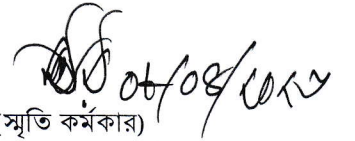 ০৮/০৪/২০২৩
(স্মৃতি কর্মকার)